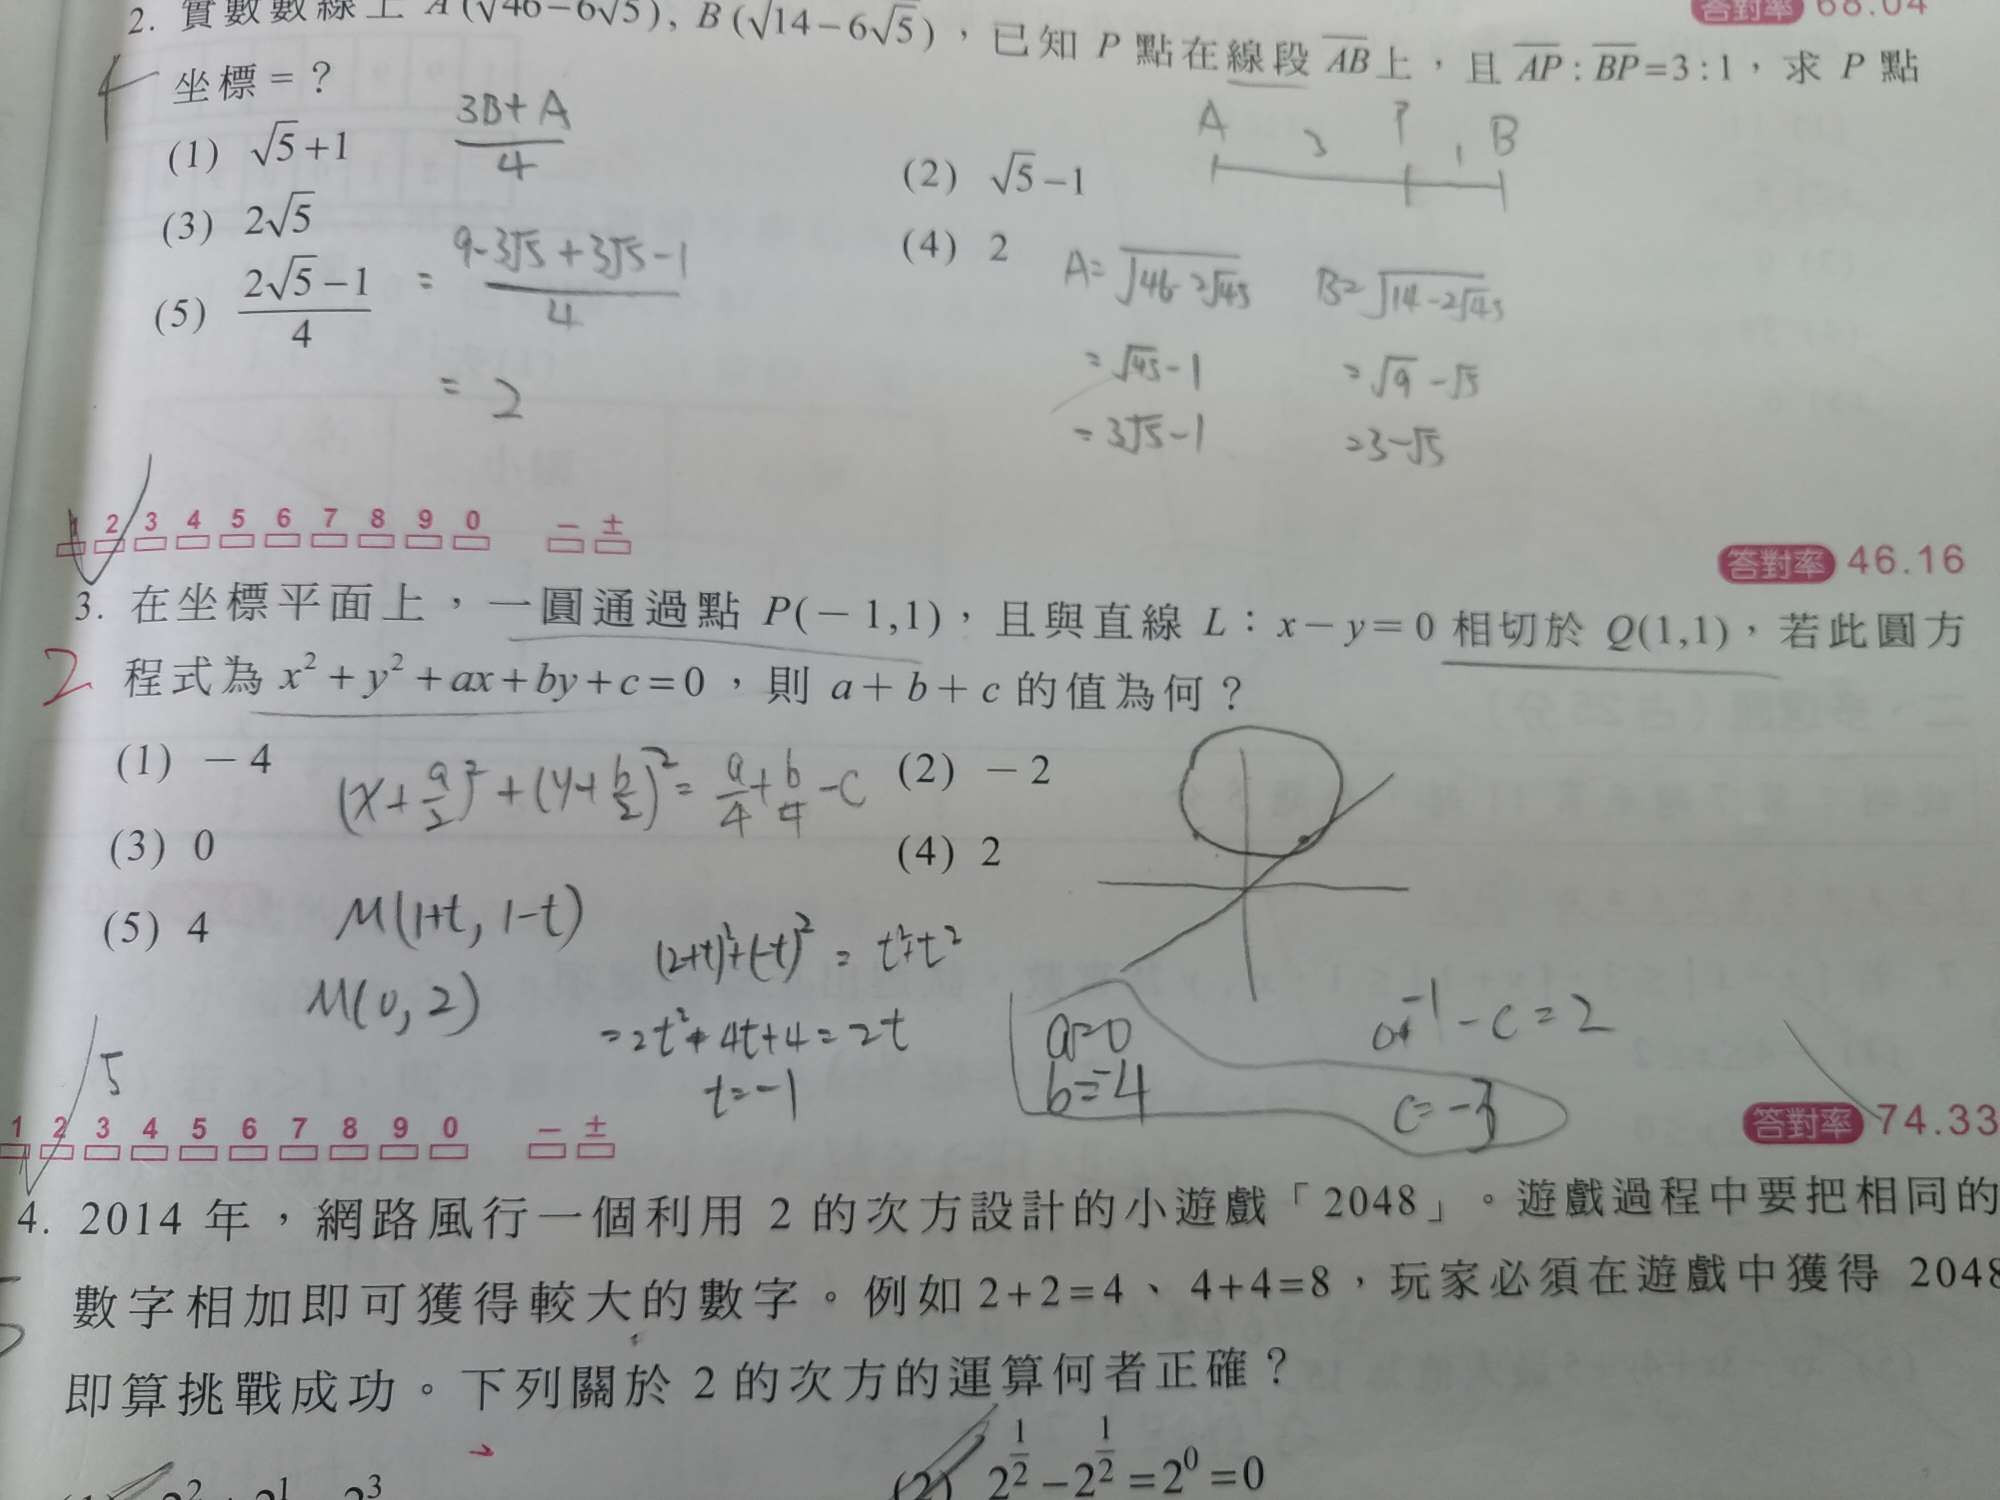 2. 實數數線上 A(√46−6√5), B(√14−6√5),已知 P 點在線段 AB 上,且 AP : BP=3 : 1,求 P 點
答對率 68.04
坐標 = ?
(1) √5+1
(2) √5−1
(3) 2√5
(4) 2
(5) (2√5−1)/4
4
(3B+A)/4
= (9-3√5+3√5-1)/4
= 2
A 3 P 1 B
A= √46-2√45
= √45-1
= 3√5-1
B= √14-2√45
= √9-√5
=3-√5
1 2 3 4 5 6 7 8 9 0 − ±
答對率 46.16
3. 在坐標平面上,一圓通過點 P(−1,1),且與直線 L:x−y=0 相切於 Q(1,1),若此圓方
程式為 x²+y²+ax+by+c=0,則 a+b+c 的值為何?
2
(1) −4
(2) −2
(3) 0
(4) 2
(5) 4
(x+a/2)²+(y+b/2)²= a/4+b/4-c
M(1+t, 1-t)
M(0, 2)
(2+t)²+(-t)² = t²+t²
=2t²+4t+4=2t
t=-1
a=0
b=-4
-c=2
5
1 2 3 4 5 6 7 8 9 0 − ±
答對率 74.33
4. 2014 年,網路風行一個利用 2 的次方設計的小遊戲「2048」。遊戲過程中要把相同的
數字相加即可獲得較大的數字。例如 2+2=4、4+4=8,玩家必須在遊戲中獲得 2048
即算挑戰成功。下列關於 2 的次方的運算何者正確?
(2) 2^(1/2)−2^(1/2)=2⁰=0